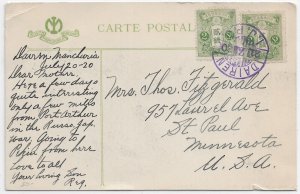 CARTE POSTALE
Dairen Manchuria
July 20-20
Dear Mother
Here a few days
quite intristing
only a few miles
from Port Arthur
in the Russo Jap.
War. Going to
Pekin from here
Love to all
Your loving Son
Reg.
DAIREN
Mrs. Thos. Fitzgerald
957 Laurel Ave
St Paul
Minnesota
U.S.A.